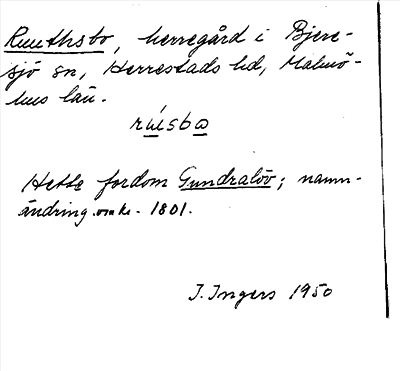 Ruuthsbo, herregård i Bjere-
sjö sn, Herrestads hd, Malmö-
hus län.
rúsbo
Hette fordom Gundralöv; namn-
ändring omkr. 1801.
I. Ingers 1950